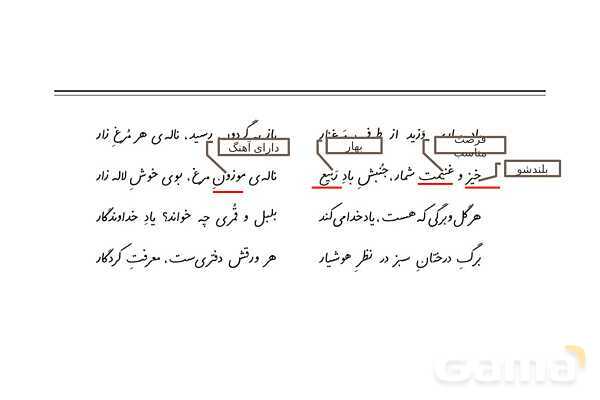 باد بهاری وزید از طرف مرغزار
باز به گردون رسید، ناله‌ی هر مُرغِ زار
فرصت مناسب
بهار
دارای آهنگ
بلندشو
خیز و غنیمت شمار، جُنبشِ بادِ رَبیع
ناله‌ی موزونِ مرغ، بوی خوشِ لاله زار
هر گل و برگی که هست، یاد خدا می‌کند
بلبل و قُمری چه خواند؟ یادِ خداوندگار
برگِ درختانِ سبز در نظرِ هوشیار
هر ورقش دفتری‌ست، معرفتِ کردگار
Gama